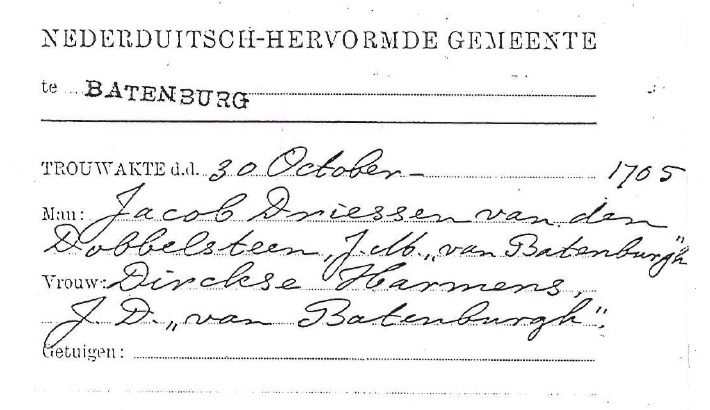 NEDERDUITSCH-HERVORMDE GEMEENTE
te BATENBURG
TROUWAKTE d.d. 30 October - 1705
Man: Jacob Driessen van den
Dobbelsteen, J.M. „van Batenburgh”
Vrouw: Dirckse Harmens,
J.D. „van Batenburgh”.
Getuigen: